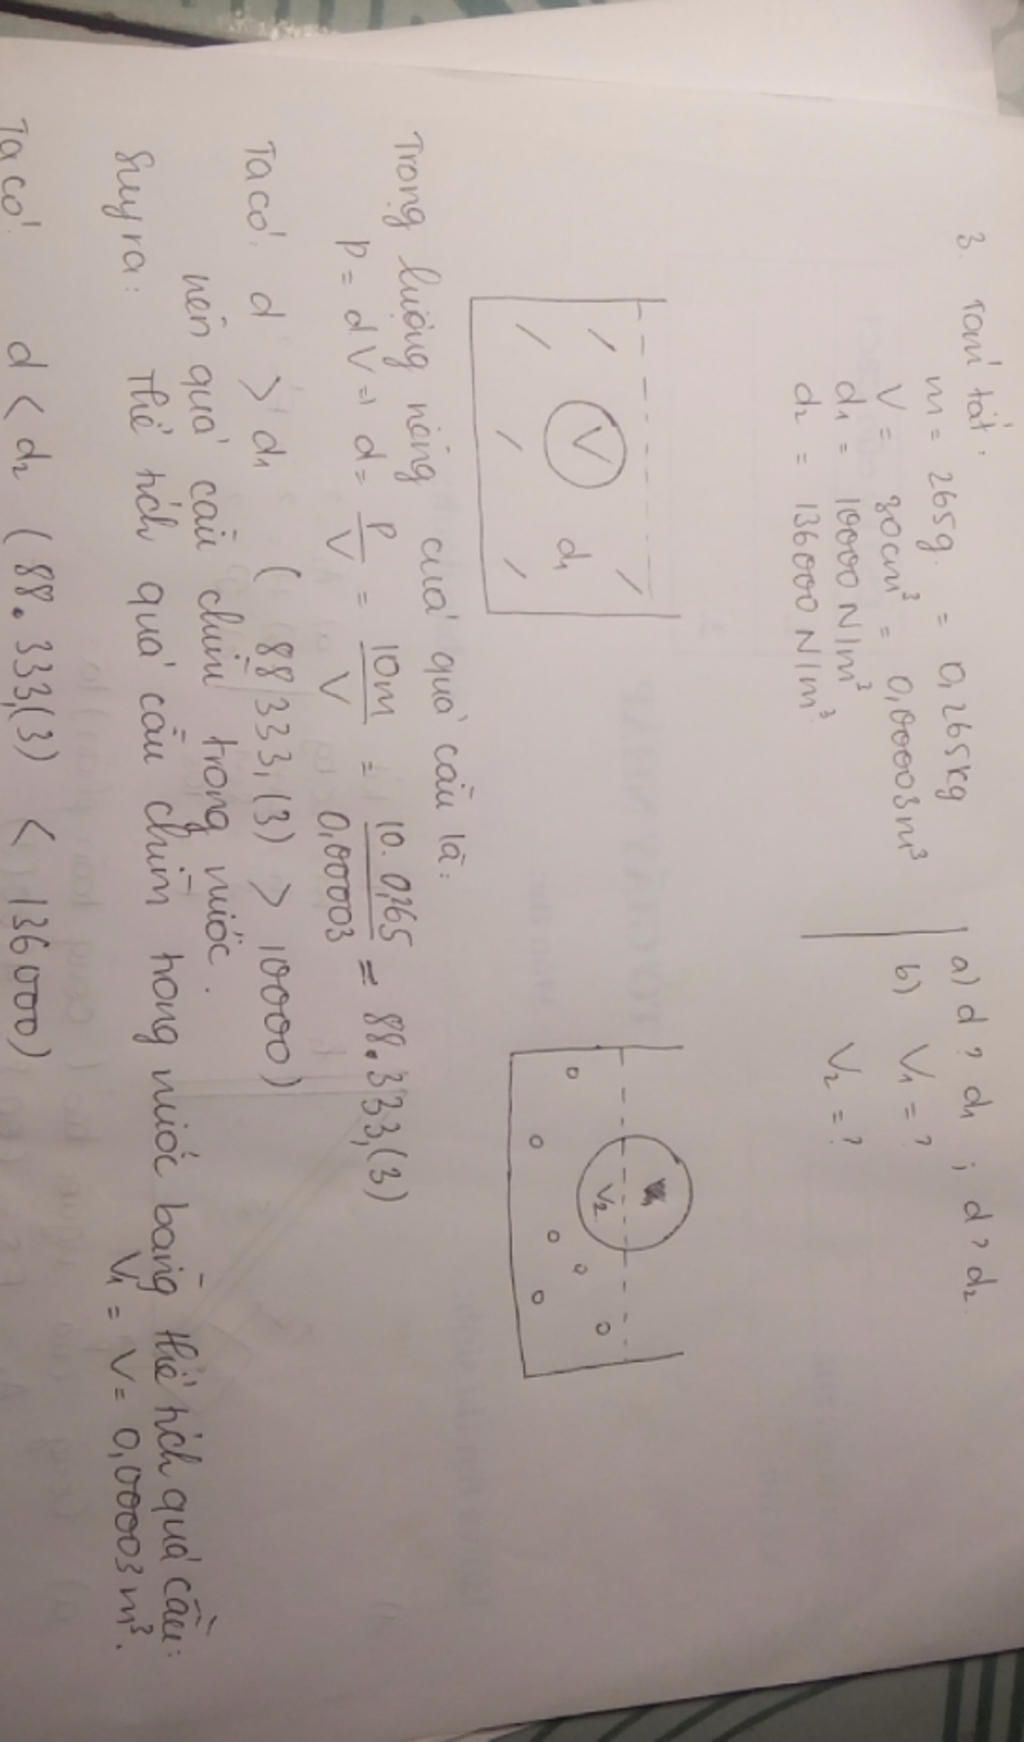 3. Tóm tắt.
m = 265g. = 0,265kg
V = 30cm³ = 0,00003m³
d₁ = 10000 N/m³
d₂ = 136000 N/m³
a) d ? d₁ ; d ? d₂.
b) V₁ = ?
V₂ = ?
V
d₁
V₂
Trọng lượng riêng của quả cầu là:
P = dV => d = P/V = 10m/V = 10. 0,265/0,00003 = 88.333,(3)
Ta có: d > d₁ (88 333,(3) > 10000)
nên quả cầu chìm trong nước.
Suy ra: Thể tích quả cầu chìm trong nước bằng thể tích quả cầu:
V₁ = V = 0,00003 m³.
Ta có: d < d₂ (88.333,(3) < 136000)